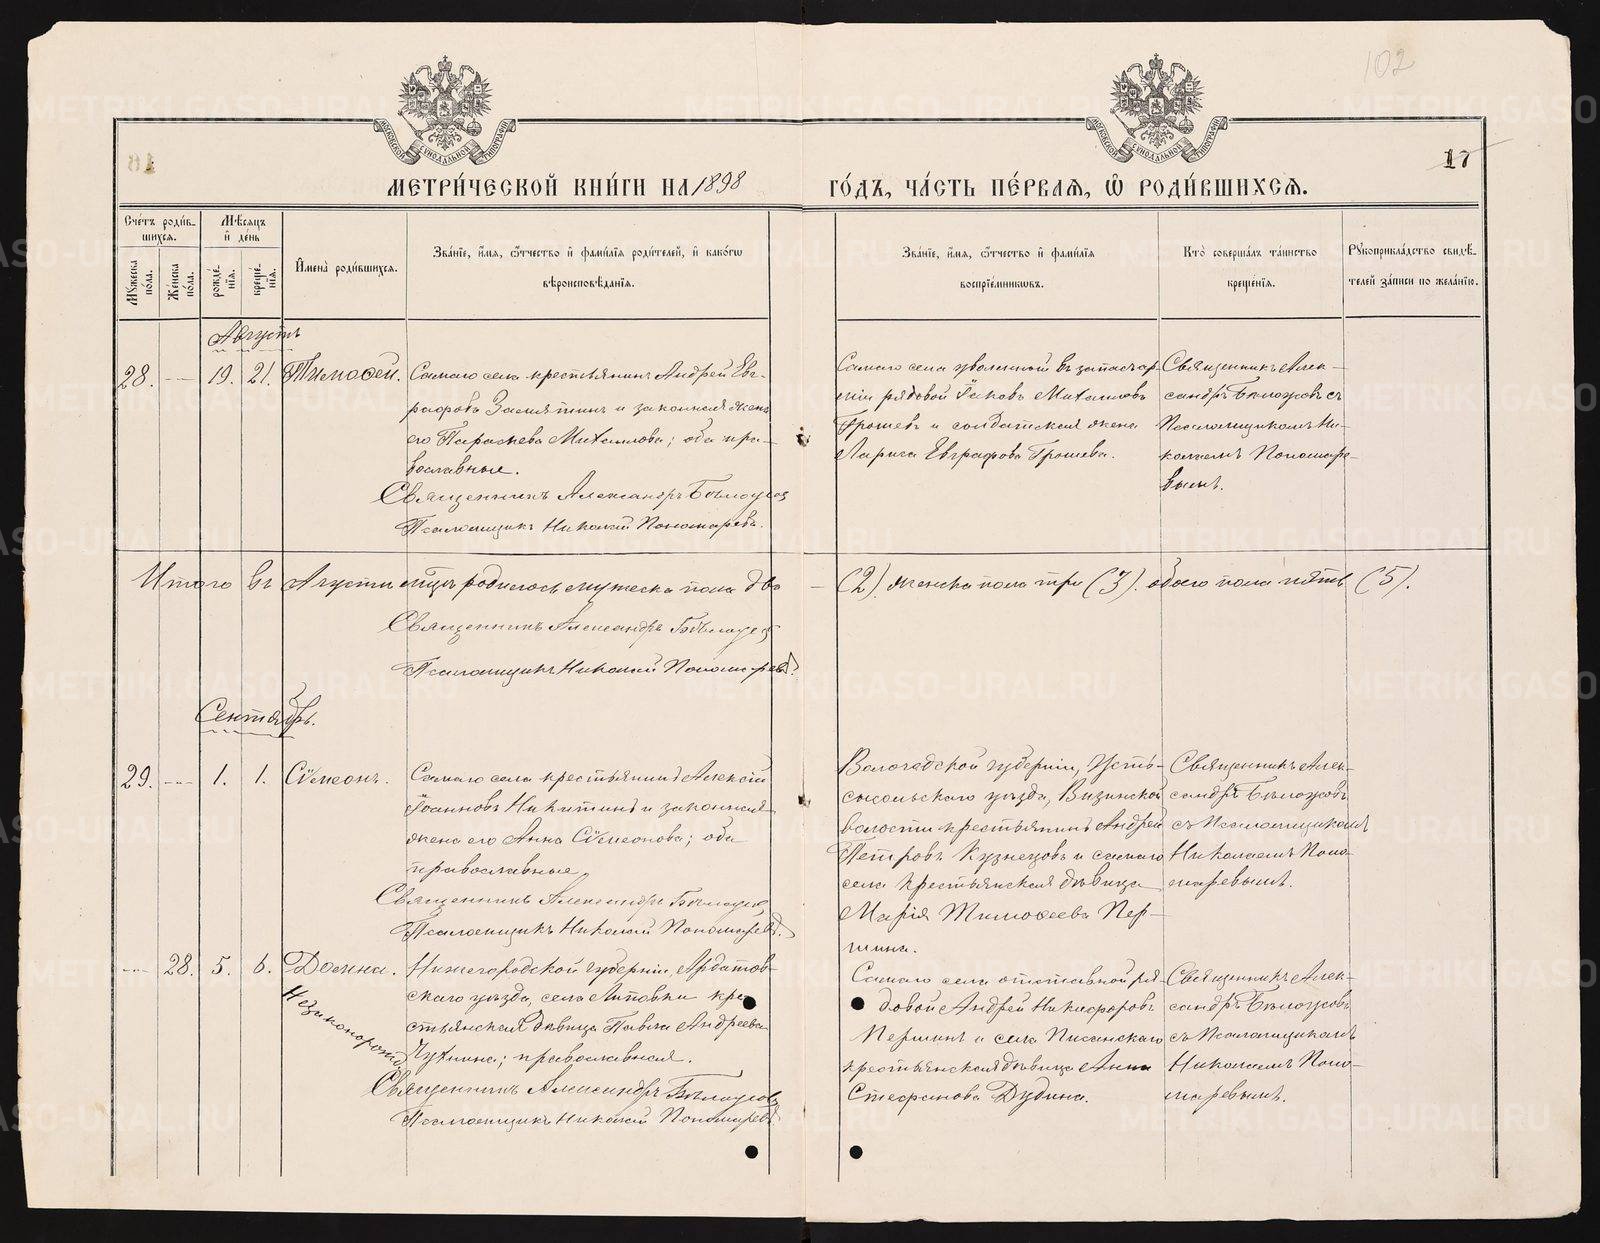 102
17
МЕТРИ́ЧЕСКОЙ КНИ́ГИ НА 1898
ГО́ДЪ, ЧА́СТЬ ПЕ́РВАЯ, Ѽ РОДИ́ВШИХСЯ.
Сче́тъ роди́в-
шихся.
Мꙋ́жеска по́ла.
Же́нска по́ла.
Мѣ́сяцъ
и҆ де́нь
рожде́-
нїя.
креще́-
нїя.
И҆мена̀ роди́вшихся.
Зва́нїе, и҆́мя, ѻ҆́тчество и҆ фами́лїя роди́телей, и҆ како́гѡ
вѣроисповѣ́данїя.
Зва́нїе, и҆́мя, ѻ҆́тчество и҆ фами́лїя
воспрїе́мникѡвъ.
Кто̀ соверша́лъ та́инство
креще́нїя.
Рꙋкоприкла́дство свидѣ́-
телей за́писи по жела́нїю.
Августъ
28.
19.
21.
Тимоѳей.
Самаго села крестьянинъ Андрей Евг-
рафовъ Замятинъ и законная жена
его Параскева Михаилова; оба пра-
вославные.
Священникъ Александръ Бѣлоусов
Псаломщикъ Николай Пономаревъ.
Самаго села уволенный въ запас ар-
міи рядовой Іаковъ Михаиловъ
Грошевъ и солдатская жена
Лариса Евграфова Грошева.
Священникъ Алек-
сандръ Бѣлоусовъ съ
Псаломщикомъ Ни-
колаемъ Пономаре-
вымъ.
Итого въ Августѣ мцѣ родилось мужеска пола два
— (2). женска пола три (3). обоего пола пять (5).
Священникъ Александръ Бѣлоусов
Псаломщикъ Николай Пономаревъ.
Сентябрь.
29.
1.
1.
Сѵмеонъ.
Самаго села крестьянинъ Алексій
Іоанновъ Никитинъ и законная
жена его Анна Сѵмеонова; оба
православные.
Священникъ Александръ Бѣлоусов
Псаломщикъ Николай Пономаревъ.
Вологодской губерніи, Усть-
сысольскаго уѣзда, Визинской
волости крестьянинъ Андрей
Петровъ Кузнецовъ и самаго
села крестьянская дѣвица
Марія Тимоѳеева Пер-
шина.
Священникъ Алек-
сандръ Бѣлоусовъ
съ Псаломщикомъ
Николаемъ Поно-
маревымъ.
28.
5.
6.
Домна.
Незаконорожд.
Нижегородской губерніи, Ардатов-
скаго уѣзда, села Липовки кре-
стьянская дѣвица Андреева
православная.
Священникъ Александръ Бѣлоусовъ
Псаломщикъ Николай Пономаревъ
Самаго села отставной ря-
довой Андрей Никифоровъ
Першинъ и села Писанскаго
крестьянская дѣвица Анна
Стефанова Дубина.
Священникъ Алек-
сандръ Бѣлоусовъ
съ Псаломщикомъ
Николаемъ Поно-
маревымъ.
METRIKI.GASO-URAL.RU